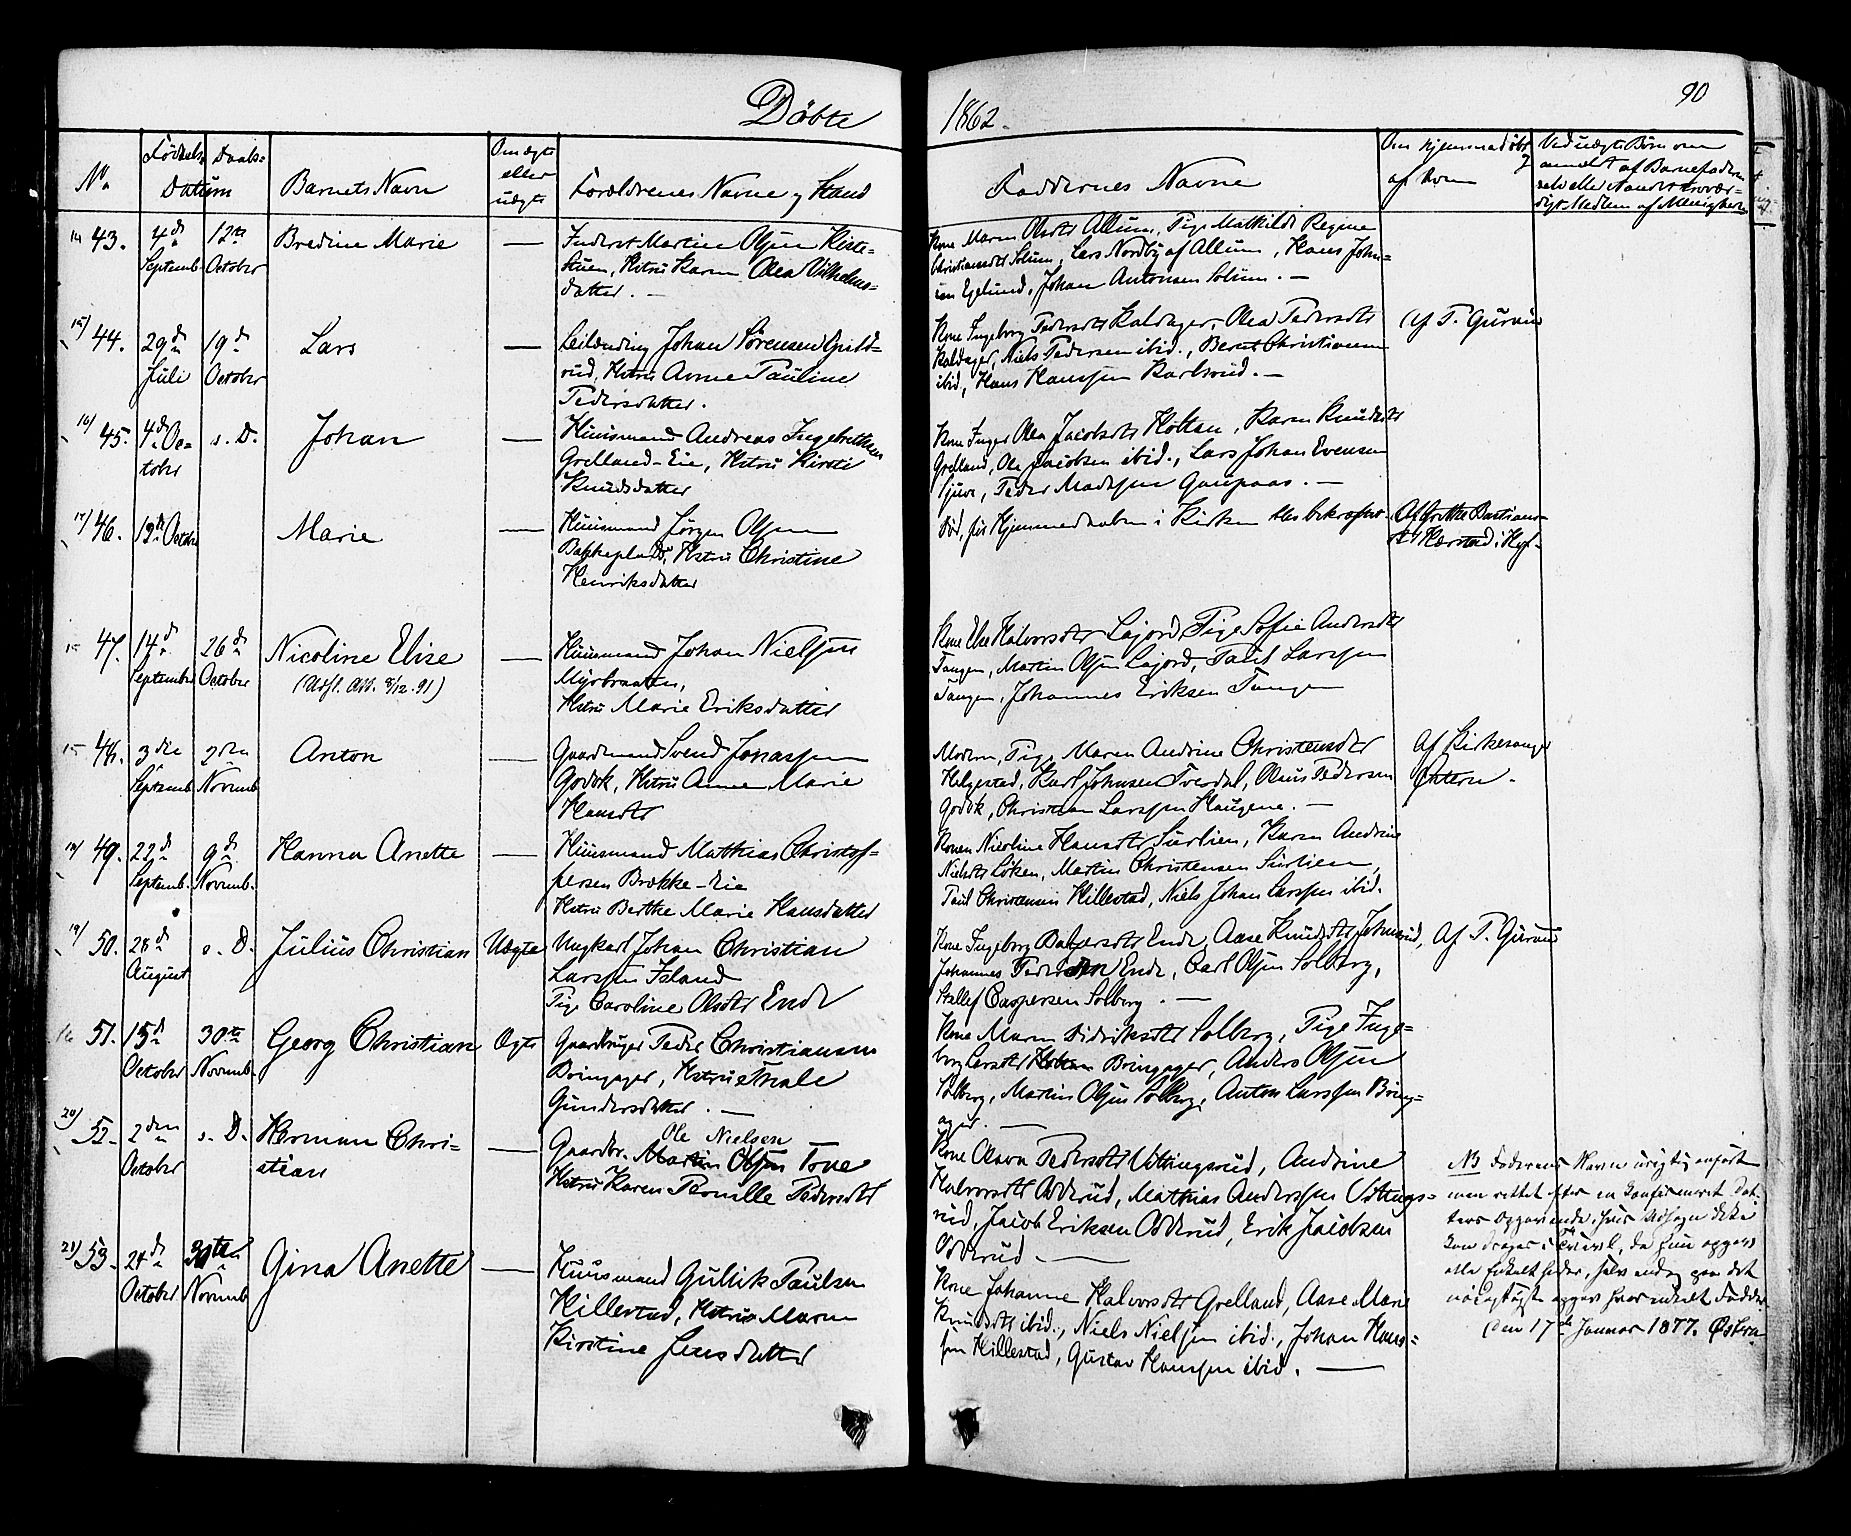 Döbte
1862.
90
No.
Födsels-
Daabs-
Datum
Barnets Navn
Om ægte
eller
uægte
Forældrenes Navne og Stand
Faddernes Navne
Om hjemmedöbt
af hvem
Ved uægte Börn om
anmeldt af Barnefaderen
selv eller Andet trovær-
digt Medlem af Menigheden
14 43. 4de
Septemb.
12te
October
Bredine Marie
—
Inderst Martin Olsen Kirke-
stuen, Hstru Karen Olea Vilhelms-
datter. —
Kone Maren Olsdtr Allum, Pige Mathilde Regine
Christiansdtr Solum, Lars Nordby af Allum, Hans John-
sen Egelund, Johan Antonsen Solum. —
15/ 44. 29de
Juli
19de
October
Lars
—
Leilænding Johan Sörensen Guld-
rud, Hstru Anne Pauline
Pedersdatter.
Kone Ingeborg Pedersdtr Kaldager, Olea Pedersdtr
Kaldager, Niels Pedersen ibid., Bernt Christiansen
ibid, Hans Hanssen Karlsrud. —
Af P. Gurrud
16/ 45. 4de Oc-
tober
s. D.
Johan
—
Huusmand Andreas Ingebrethsen
Grelland-Eie, Hstru Kirsti
Knudsdatter
Kone Inger Olea Jacobsdtr Holtan, Karen Knudsdtr
Grelland, Ole Jacobsen ibid., Lars Johan Evensen
Peder Madssen Gaupaas. —
17/ 46. 13de October
Marie
—
Huusmand Jörgen Olsen
Bakkeplads, Hstru Christine
Henriksdatter
Död, för Hjemmedaaben i Kirken blev bekræftet.
Af Grethe Bastians-
dtr Hærstad i Hof.
47. 14de
September
26de
October
Nicoline Elise
(Udfl. Att. 8/12. 91)
—
Huusmand Johan Nielssen
Myrbraaten,
Hstru Marie Eriksdatter
Kone Else Halvorsdtr Lajord, Pige Sofie Andersdtr
Tangen, Martin Olsen Lajord, Paul Larssen
Tangen, Johannes Eriksen Tangen
48. 3die
Septemb.
2den
Novemb.
Anton
—
Gaardmand Svend Jonassen
Godok, Hstru Anne Marie
Hansdtr
Moderen, Pige Maren Andrine Christensdtr
Helgestad, Karl Johnsen Tverdal, Olaus Pedersen
Godok, Christian Larssen Haugene. —
Af Kirkesanger
18/ 49. 22de
Septemb.
9de
Novemb.
Hanna Anette
—
Huusmand Mathias Christof-
fersen Brække-Eie
Hstru Berthe Marie Hansdatter
Konen Nicoline Hansdtr Surlien, Karen Andrine
Nielsdtr Löken, Martin Christensen Surlien,
Paul Christensen Hillestad, Niels Johan Larssen ibid.
19/ 50. 28de
August
s. D.
Julius Christian
Uægte
Ungkarl Johan Christian
Larssen Island
Pige Caroline Olsdtr Ende
Kone Ingeborg Ende, Aase Knudsdtr
Johannes Pedersen Ende, Carl Olsen Solberg,
Stallef Caspersen Solberg. —
Af P. Gurrud
51. 15de
October
30te
Novemb.
Georg Christian
Ægte
Gaardbruger Peder Christiansen
Bringager, Hstru Thale
Gundersdatter. —
Kone Maren Didriksdtr Solberg, Pige Inge-
borg Larsdtr Bringager, Anders Olsen
Solberg, Martin Olsen Solberg, Anton Larssen Bring-
ager. —
20/ 52. 2den
October
s. D.
Herman Chri-
stian
—
Ole Nielsen
Gaardbr. Martin Olsen Tone
Hstru Karen Pernille Pedersdtr
Kone Olava Pedersdtr Vittingsrud, Andrine
Halvorsdtr Odderud, Mathias Anderssen Vittings-
rud, Jacob Eriksen Odderud, Erik Jacobsen
Odderud —
NB Faderens Navn urigtig anfört
men rettet efter en Konfirmeret Dat-
ters Opgivende, hvis Udsagn ikke
kan drages i Tvivl, da hun opgav
alle Enkeltheder, selv endog paa det
nöiagtigste opgav hver enkelt Fadder
Den 17de Januar 1877.
21/ 53. 24de
October
30te
Novemb.
Gina Anette
—
Huusmand Gullik Paulsen
Hillestad, Hstru Maren
Kirstine Jensdatter
Kone Johanne Halvorsdtr Grelland, Aase Marie
Knudsdtr ibid., Niels Nielsen ibid., Johan Hans-
sen Hillestad, Gustav Hanssen ibid. —